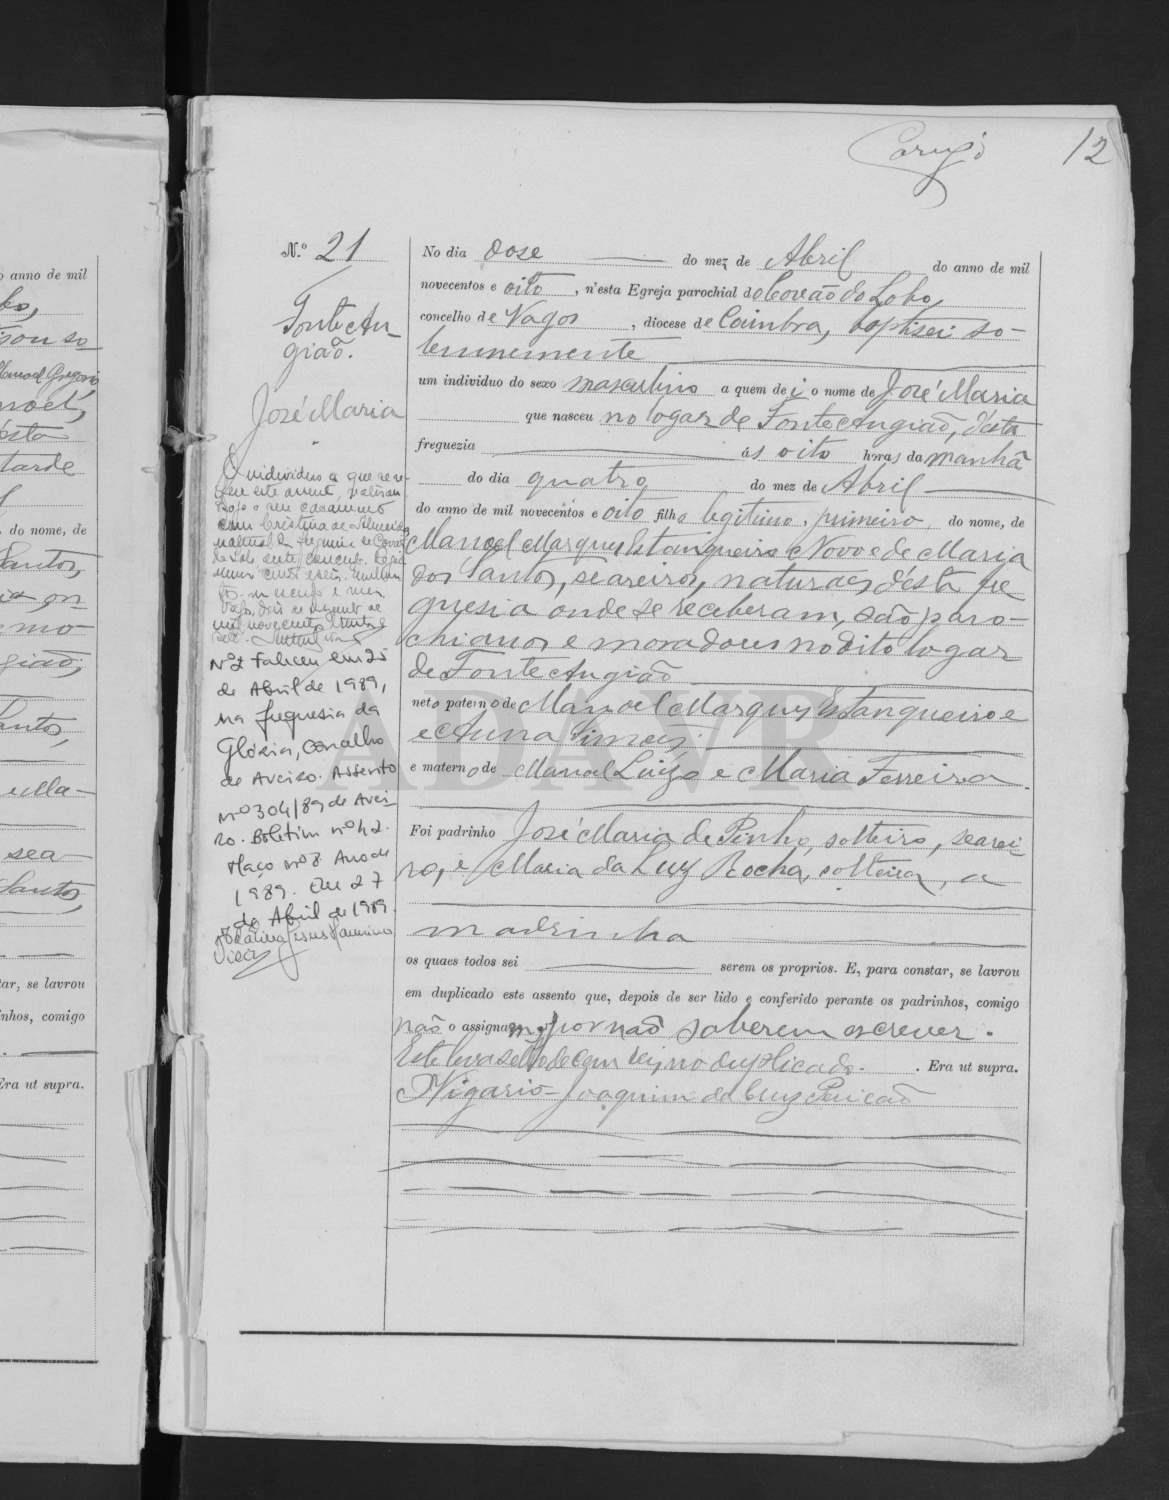 12
N.º 21
Fonte An-
gião.
José Maria
O individuo a que se re-
fere este assento, realisou
hoje o seu casamento
com Cristina de Almeida
natural da freguesia de Covão
do Lobo
mil novecentos trinta e
Nº 2 Faleceu em 25
de Abril de 1989,
na freguesia da
Glória, concelho
de Aveiro. Assento
nº 304/89 de Avei-
ro. Boletim nº 42.
Maço nº 8 Ano de
1989. Em 27
de Abril de 1989.
No dia dose do mez de Abril do anno de mil
novecentos e oito, n'esta Egreja parochial de Covão do Lobo,
concelho de Vagos, diocese de Coimbra, baptisei so-
lemnemente
um individuo do sexo masculino a quem dei o nome de José Maria
que nasceu no logar de Fonte Angião, d'esta
freguezia ás oito horas da manhã
do dia quatro do mez de Abril
do anno de mil novecentos e oito filho legitimo, primeiro, do nome, de
Manoel Marques Estanqueiro Novo e de Maria
dos Santos, seareiros, naturaes d'ésta fre
guesia onde se receberam, são paro-
chianos e moradores no dito logar
de Fonte Angião
neto paterno de Manoel Marques Estanqueiro e
e Anna Simões;
e materno de Manoel Luizo e Maria Ferreira.
Foi padrinho José Maria de Pinho, solteiro, searei-
ro, e Maria da Luz Rocha, solteira, a
madrinha
os quaes todos sei serem os proprios. E, para constar, se lavrou
em duplicado este assento que, depois de ser lido e conferido perante os padrinhos, comigo
não o assignam por não saberem escrever.
Este leva sello de cem reis no duplicado. Era ut supra.
O Vigario - Joaquim da Cruz
ADAVR
o anno de mil
tarde
do nome, de
Santos,
Santos,
e Ma-
sea-
Santos,
tar, se lavrou
inhos, comigo
Era ut supra.